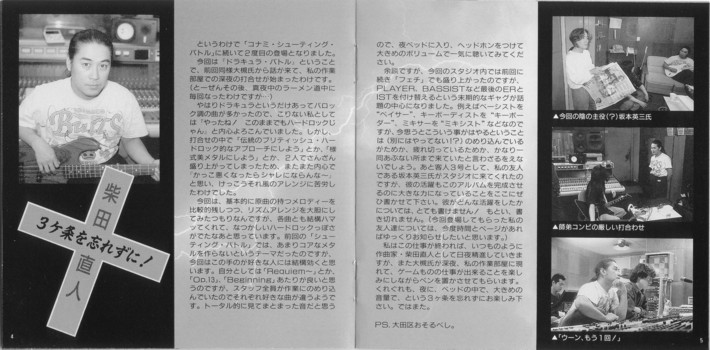 柴田直人
3ヶ条を忘れずに!
というわけで「コナミ・シューティング・
バトル」に続いて2度目の登場となりました。
今回は「ドラキュラ・バトル」ということ
で、前回同様大槻氏から話が来て、私の作業
部屋での深夜の打合せが始まったわけです。
(とーぜんその後、真夜中のラーメン道中に
毎回なったわけですが…)
やはりドラキュラというだけあってバロッ
ク調の曲が多かったので、こりない私として
は「やったね! このままでもハードロックじ
ゃん」と内心よろこんでいました。しかし、
打合せの中で「伝統のブリティッシュ・ハー
ドロック的なアプローチにしよう」とか、「様
式美メタルにしよう」とか、2人でさんざん
盛り上がってしまったため、またまた内心で
「かっこ悪くなったらシャレにならんなー」
と思い、けっこうそれ風のアレンジに苦労し
たわけでした。
今回は、基本的に原曲の持つメロディーを
比較的残しつつ、リズムアレンジを大胆にし
てみたつもりなんですが、各曲とも結構ハマ
ってくれて、なつかしいハードロックっぽさ
がでたなあと思っています。前回の「シュー
ティング・バトル」では、あまりコアなメタ
ルを作らないというテーマだったのですが、
今回はこの手のが好きな人には結構効くと思
います。自分としては「Requiem〜」とか、
「Op.13」、「Beginning」あたりが良いと思
うのですが、スタッフ全員が作業にのめり込
んでいたのでそれぞれ好きな曲が違うようで
す。トータル的に見てまとまった音だと思う
4
ので、夜ベッドに入り、ヘッドホンをつけて
大きめのボリュームで一気に聴いてみてくだ
さい。
余談ですが、今回のスタジオ内では前回に
続き「フェチ」でも盛り上がったのですが、
PLAYER、BASSISTなど最後のERと
ISTを付け替えるという末期的なギャグが話
題の中心になりました。例えばベーシストを
"ベイサー"、キーボーディストを"キーボー
ダー"、ミキサーを"ミキシスト"などなので
すが、今思うとこういう事がはやるということ
は(別にはやってない!?)のめり込んでいる
がためか、疲れ切っているためか、かなり一
同あぶない所まで来ていたと言わざるをえな
いでしょう。あと裏人3号として、私の友人
である坂本英三氏がスタジオに来てくれたの
ですが、彼の活躍もこのアルバムを完成させ
るのに大きな力になっていることをここにぜ
ひ書かせて下さい。彼がどんな活躍をしたか
については、とても書けません! もとい、書
き切れません。(今回登場してもらった私の
友人達については、今度時間とページがあれ
ばゆっくりお知らせしたいと思います。)
私はこの仕事が終われば、いつものように
作曲家・柴田直人として日夜精進していきま
すが、また大槻氏が深夜、私の作業部屋に現
れて、ゲームものの仕事が出来ることを楽し
みにしながらペンを置かさせてもらいます。
くれぐれも、夜に、ベッドの中で、大きめの
音量で、という3ヶ条を忘れずにお楽しみ下
さい。ではまた。
PS. 大田区おそるべし。
▲今回の陰の主役(?)坂本英三氏
▲師弟コンビの厳しい打合わせ
▲「ウーン、もう1回!」
5